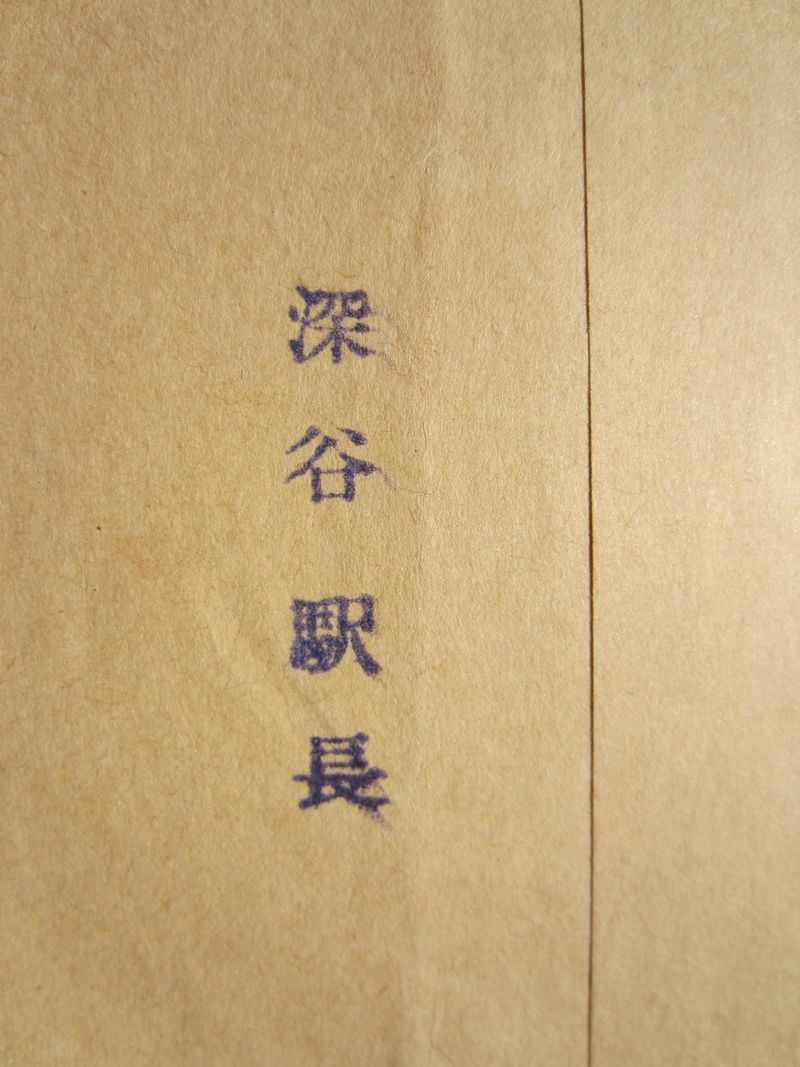 深谷駅長